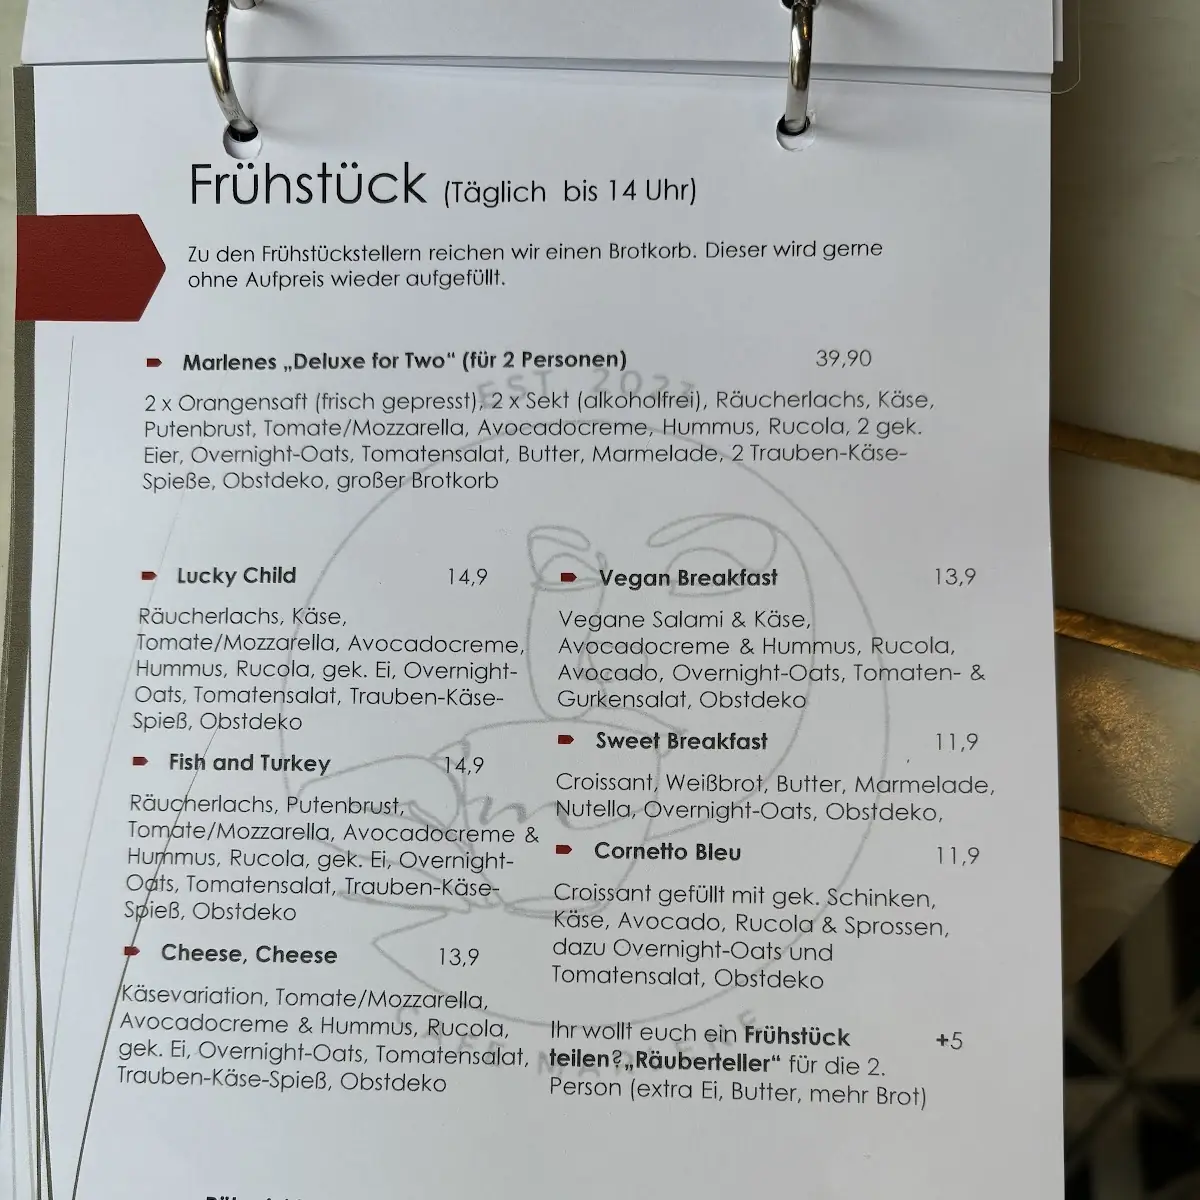 Frühstück (Täglich bis 14 Uhr)
Zu den Frühstückstellern reichen wir einen Brotkorb. Dieser wird gerne
ohne Aufpreis wieder aufgefüllt.
Marlenes „Deluxe for Two“ (für 2 Personen) 39,90
2 x Orangensaft (frisch gepresst), 2 x Sekt (alkoholfrei), Räucherlachs, Käse,
Putenbrust, Tomate/Mozzarella, Avocadocreme, Hummus, Rucola, 2 gek.
Eier, Overnight-Oats, Tomatensalat, Butter, Marmelade, 2 Trauben-Käse-
Spieße, Obstdeko, großer Brotkorb
Lucky Child 14,9
Räucherlachs, Käse,
Tomate/Mozzarella, Avocadocreme,
Hummus, Rucola, gek. Ei, Overnight-
Oats, Tomatensalat, Trauben-Käse-
Spieß, Obstdeko
Fish and Turkey 14,9
Räucherlachs, Putenbrust,
Tomate/Mozzarella, Avocadocreme &
Hummus, Rucola, gek. Ei, Overnight-
Oats, Tomatensalat, Trauben-Käse-
Spieß, Obstdeko
Cheese, Cheese 13,9
Käsevariation, Tomate/Mozzarella,
Avocadocreme & Hummus, Rucola,
gek. Ei, Overnight-Oats, Tomatensalat,
Trauben-Käse-Spieß, Obstdeko
Vegan Breakfast 13,9
Vegane Salami & Käse,
Avocadocreme & Hummus, Rucola,
Avocado, Overnight-Oats, Tomaten- &
Gurkensalat, Obstdeko
Sweet Breakfast 11,9
Croissant, Weißbrot, Butter, Marmelade,
Nutella, Overnight-Oats, Obstdeko,
Cornetto Bleu 11,9
Croissant gefüllt mit gek. Schinken,
Käse, Avocado, Rucola & Sprossen,
dazu Overnight-Oats und
Tomatensalat, Obstdeko
Ihr wollt euch ein Frühstück +5
teilen?„Räuberteller“ für die 2.
Person (extra Ei, Butter, mehr Brot)